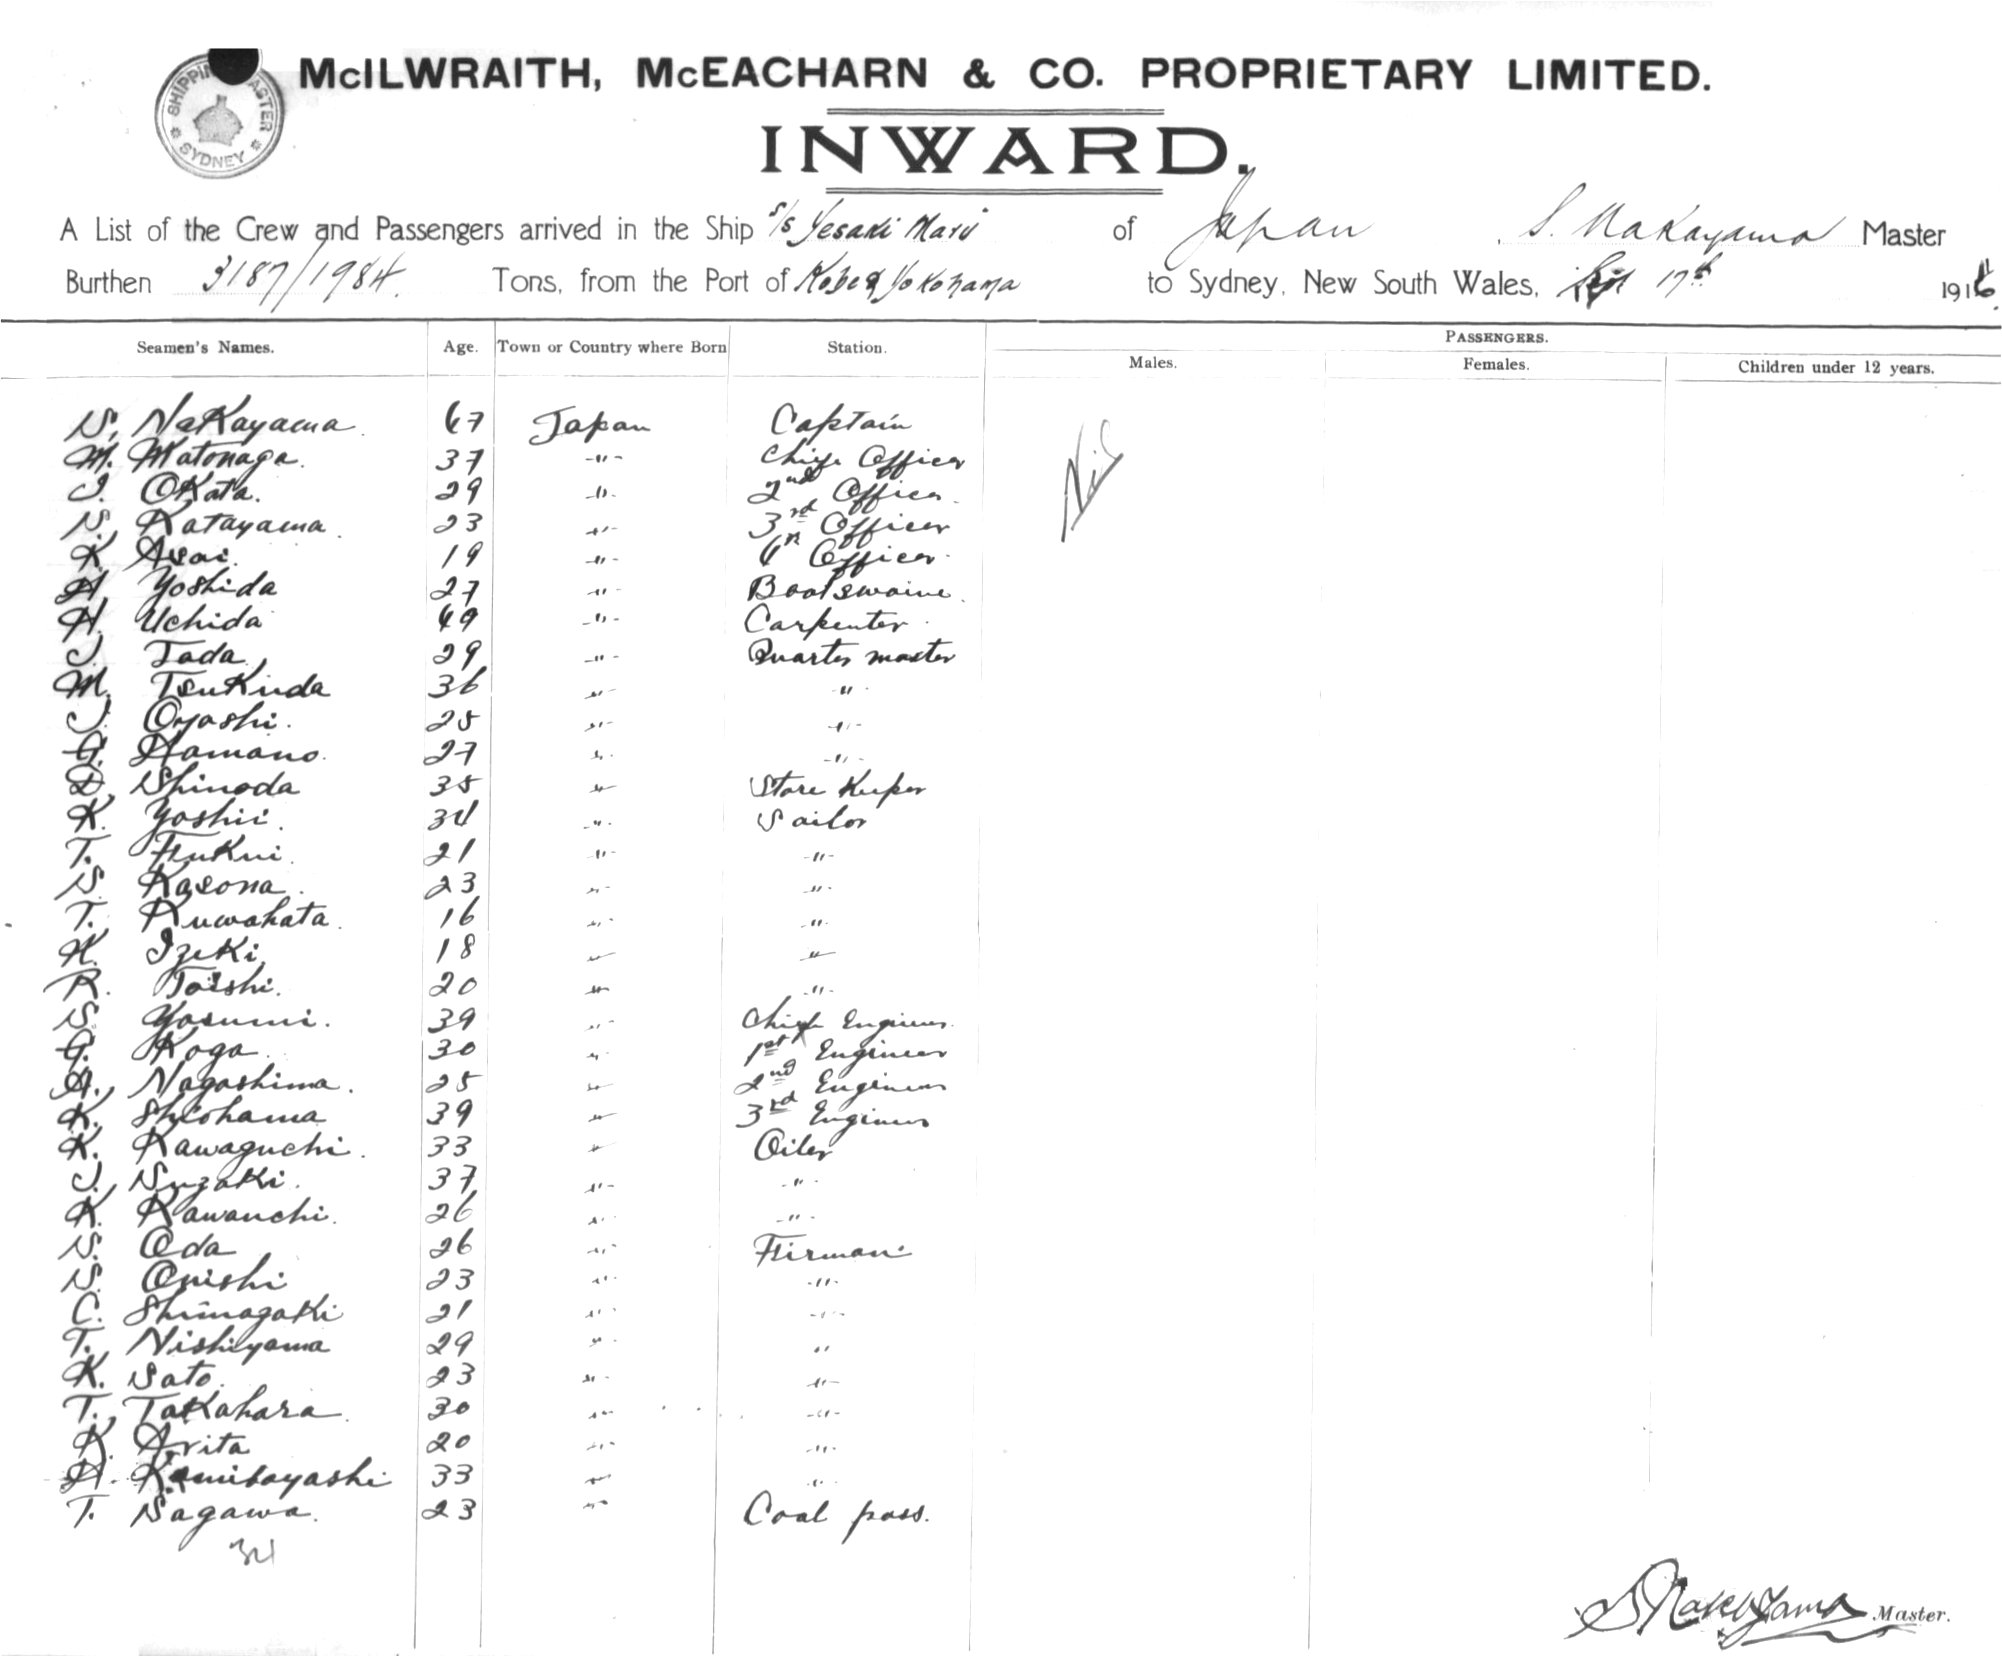 SHIPPING MASTER SYDNEY
McILWRAITH, McEACHARN & CO. PROPRIETARY LIMITED.
INWARD.
A List of the Crew and Passengers arrived in the Ship S/S Yesaki Maru of Japan, S. Nakayama Master
Burthen 3187/1984. Tons, from the Port of Kobe & Yokohama to Sydney, New South Wales, Sept 17th 1916.
Seamen's Names. Age. Town or Country where Born Station. PASSENGERS.
Males. Females. Children under 12 years.
S. Nakayama. 47 Japan Captain Nil
M. Matonaga. 37 -"- Chief Officer
J. Okata. 29 -"- 2nd Officer.
S. Katayama. 23 -"- 3rd Officer
K. Asai. 19 -"- 4th Officer.
H. Yoshida 27 -"- Boatswaine.
H. Uchida 49 -"- Carpenter.
J. Tada, 29 -"- Quarter master
M. Tsukuda 36 -"- -"-
J. Oyashi. 25 -"- -"-
G. Hamano. 27 -"- -"-
D. Shinoda 35 -"- Store Keeper
K. Yoshii. 34 -"- Sailor
T. 21 -"- -"-
S. Kasona. 23 -"- -"-
T. Kuwahata. 16 -"- -"-
K. Izeki, 18 -"- -"-
R. Toishi. 20 -"- -"-
S. Yasumi. 39 -"- Chief Engineer.
G. Koga. 30 -"- 1st Engineer
A. Nagashima. 25 -"- 2nd Engineer
K. Shiohama 39 -"- 3rd Engineer
K. Kawaguchi. 33 -"- Oiler
J. Suzaki. 37 -"- -"-
K. Kawauchi. 26 -"- -"-
S. Oda 26 -"- Firman.
S. Onishi 23 -"- -"-
C. Shimagaki 21 -"- -"-
T. Nishiyama 29 -"- "
K. Sato. 23 -"- -"-
T. Takahara. 30 -"- -"-
K. Arita 20 -"- -"-
H. Kamibayashi 33 -"- -"-
T. Sagawa. 23 -"- Coal pass.
34
S Nakayama Master.